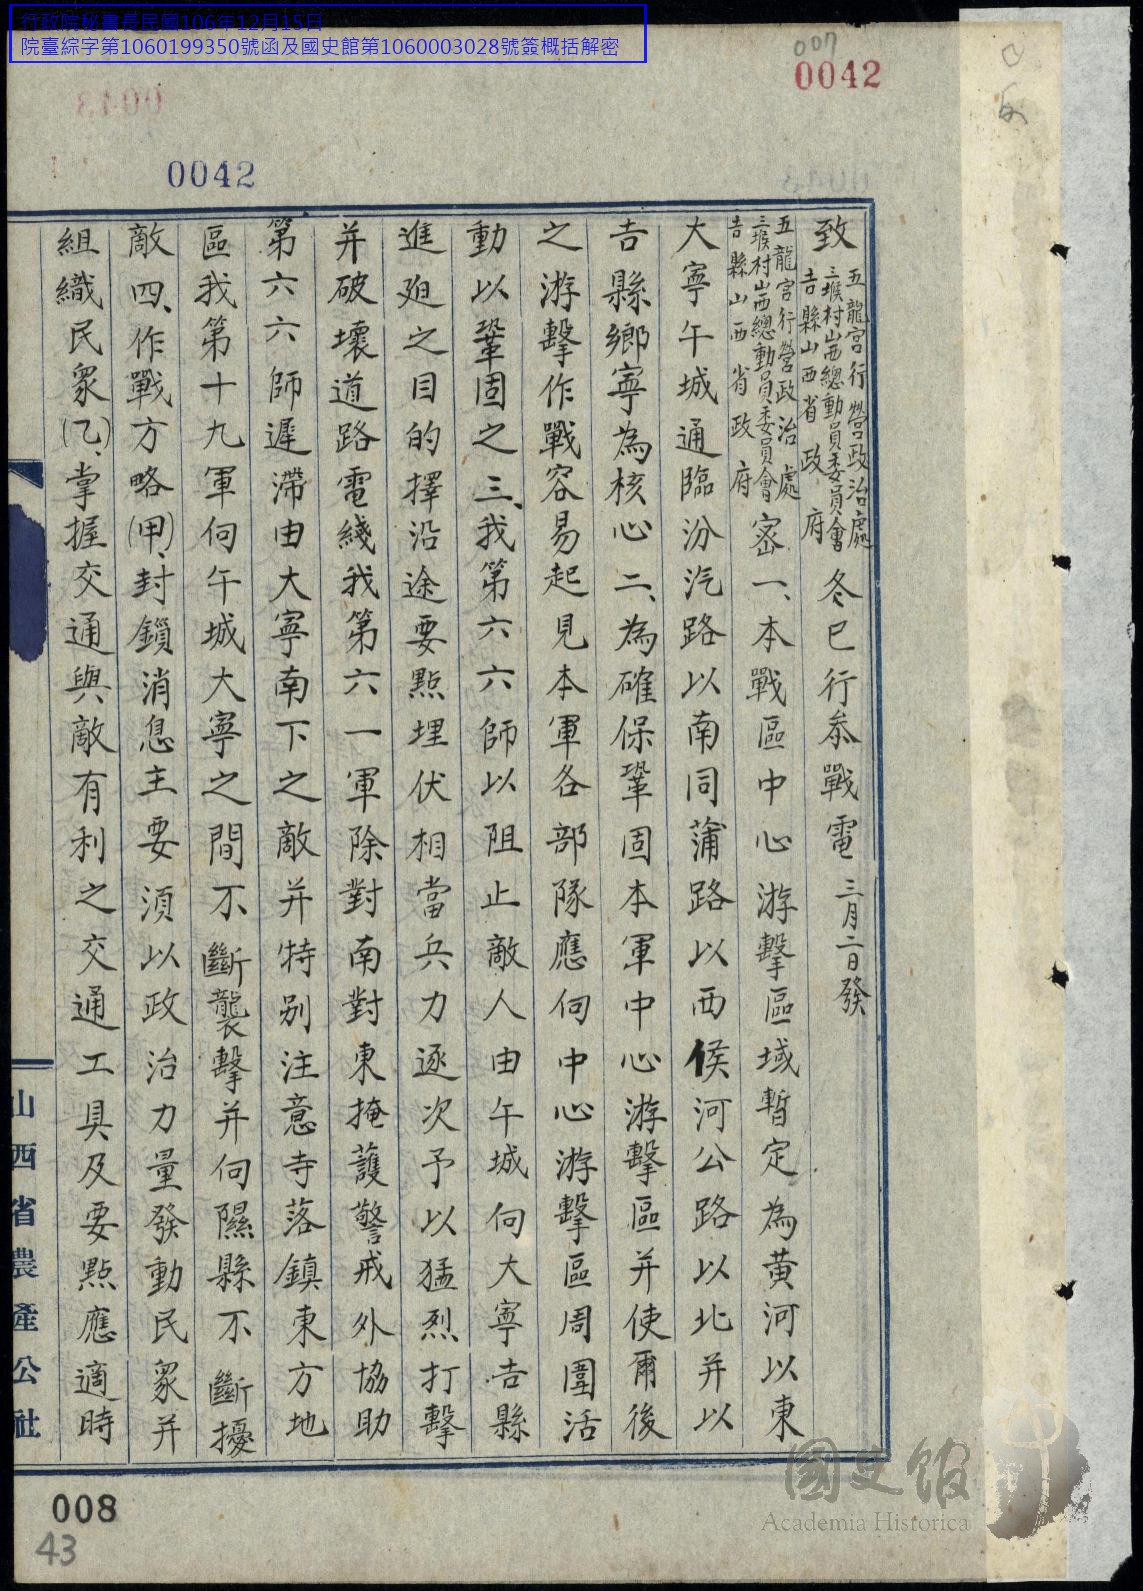 行政院秘書長民國106年12月15日
院臺綜字第1060199350號函及國史館第1060003028號簽概括解密
007
0042
0042
致五龍宮行營政治處
三堠村山西總動員委員會
吉縣山西省政府
冬巳行叅戰電三月二日發
五龍宮行營政治處
三堠村山西總動員委員會
吉縣山西省政府
密一、本戰區中心游擊區域暫定為黃河以東
大寧午城通臨汾汽路以南同蒲路以西侯河公路以北并以
吉縣鄉寧為核心二、為確保鞏固本軍中心游擊區并使爾後
之游擊作戰容易起見本軍各部隊應伺中心游擊區周圍活
動以鞏固之三、我第六六師以阻止敵人由午城伺大寧吉縣
進廹之目的擇沿途要點埋伏相當兵力逐次予以猛烈打擊
并破壞道路電綫我第六一軍除對南對東掩護警戒外協助
第六六師遲滯由大寧南下之敵并特别注意寺落鎮東方地
區我第十九軍伺午城大寧之間不斷襲擊并伺隰縣不斷擾
敵四、作戰方略(甲)、封鎖消息主要須以政治力量發動民眾并
組織民眾(乙)、掌握交通與敵有利之交通工具及要點應適時
山西省農產公社
008
43
國史館
Academia Historica